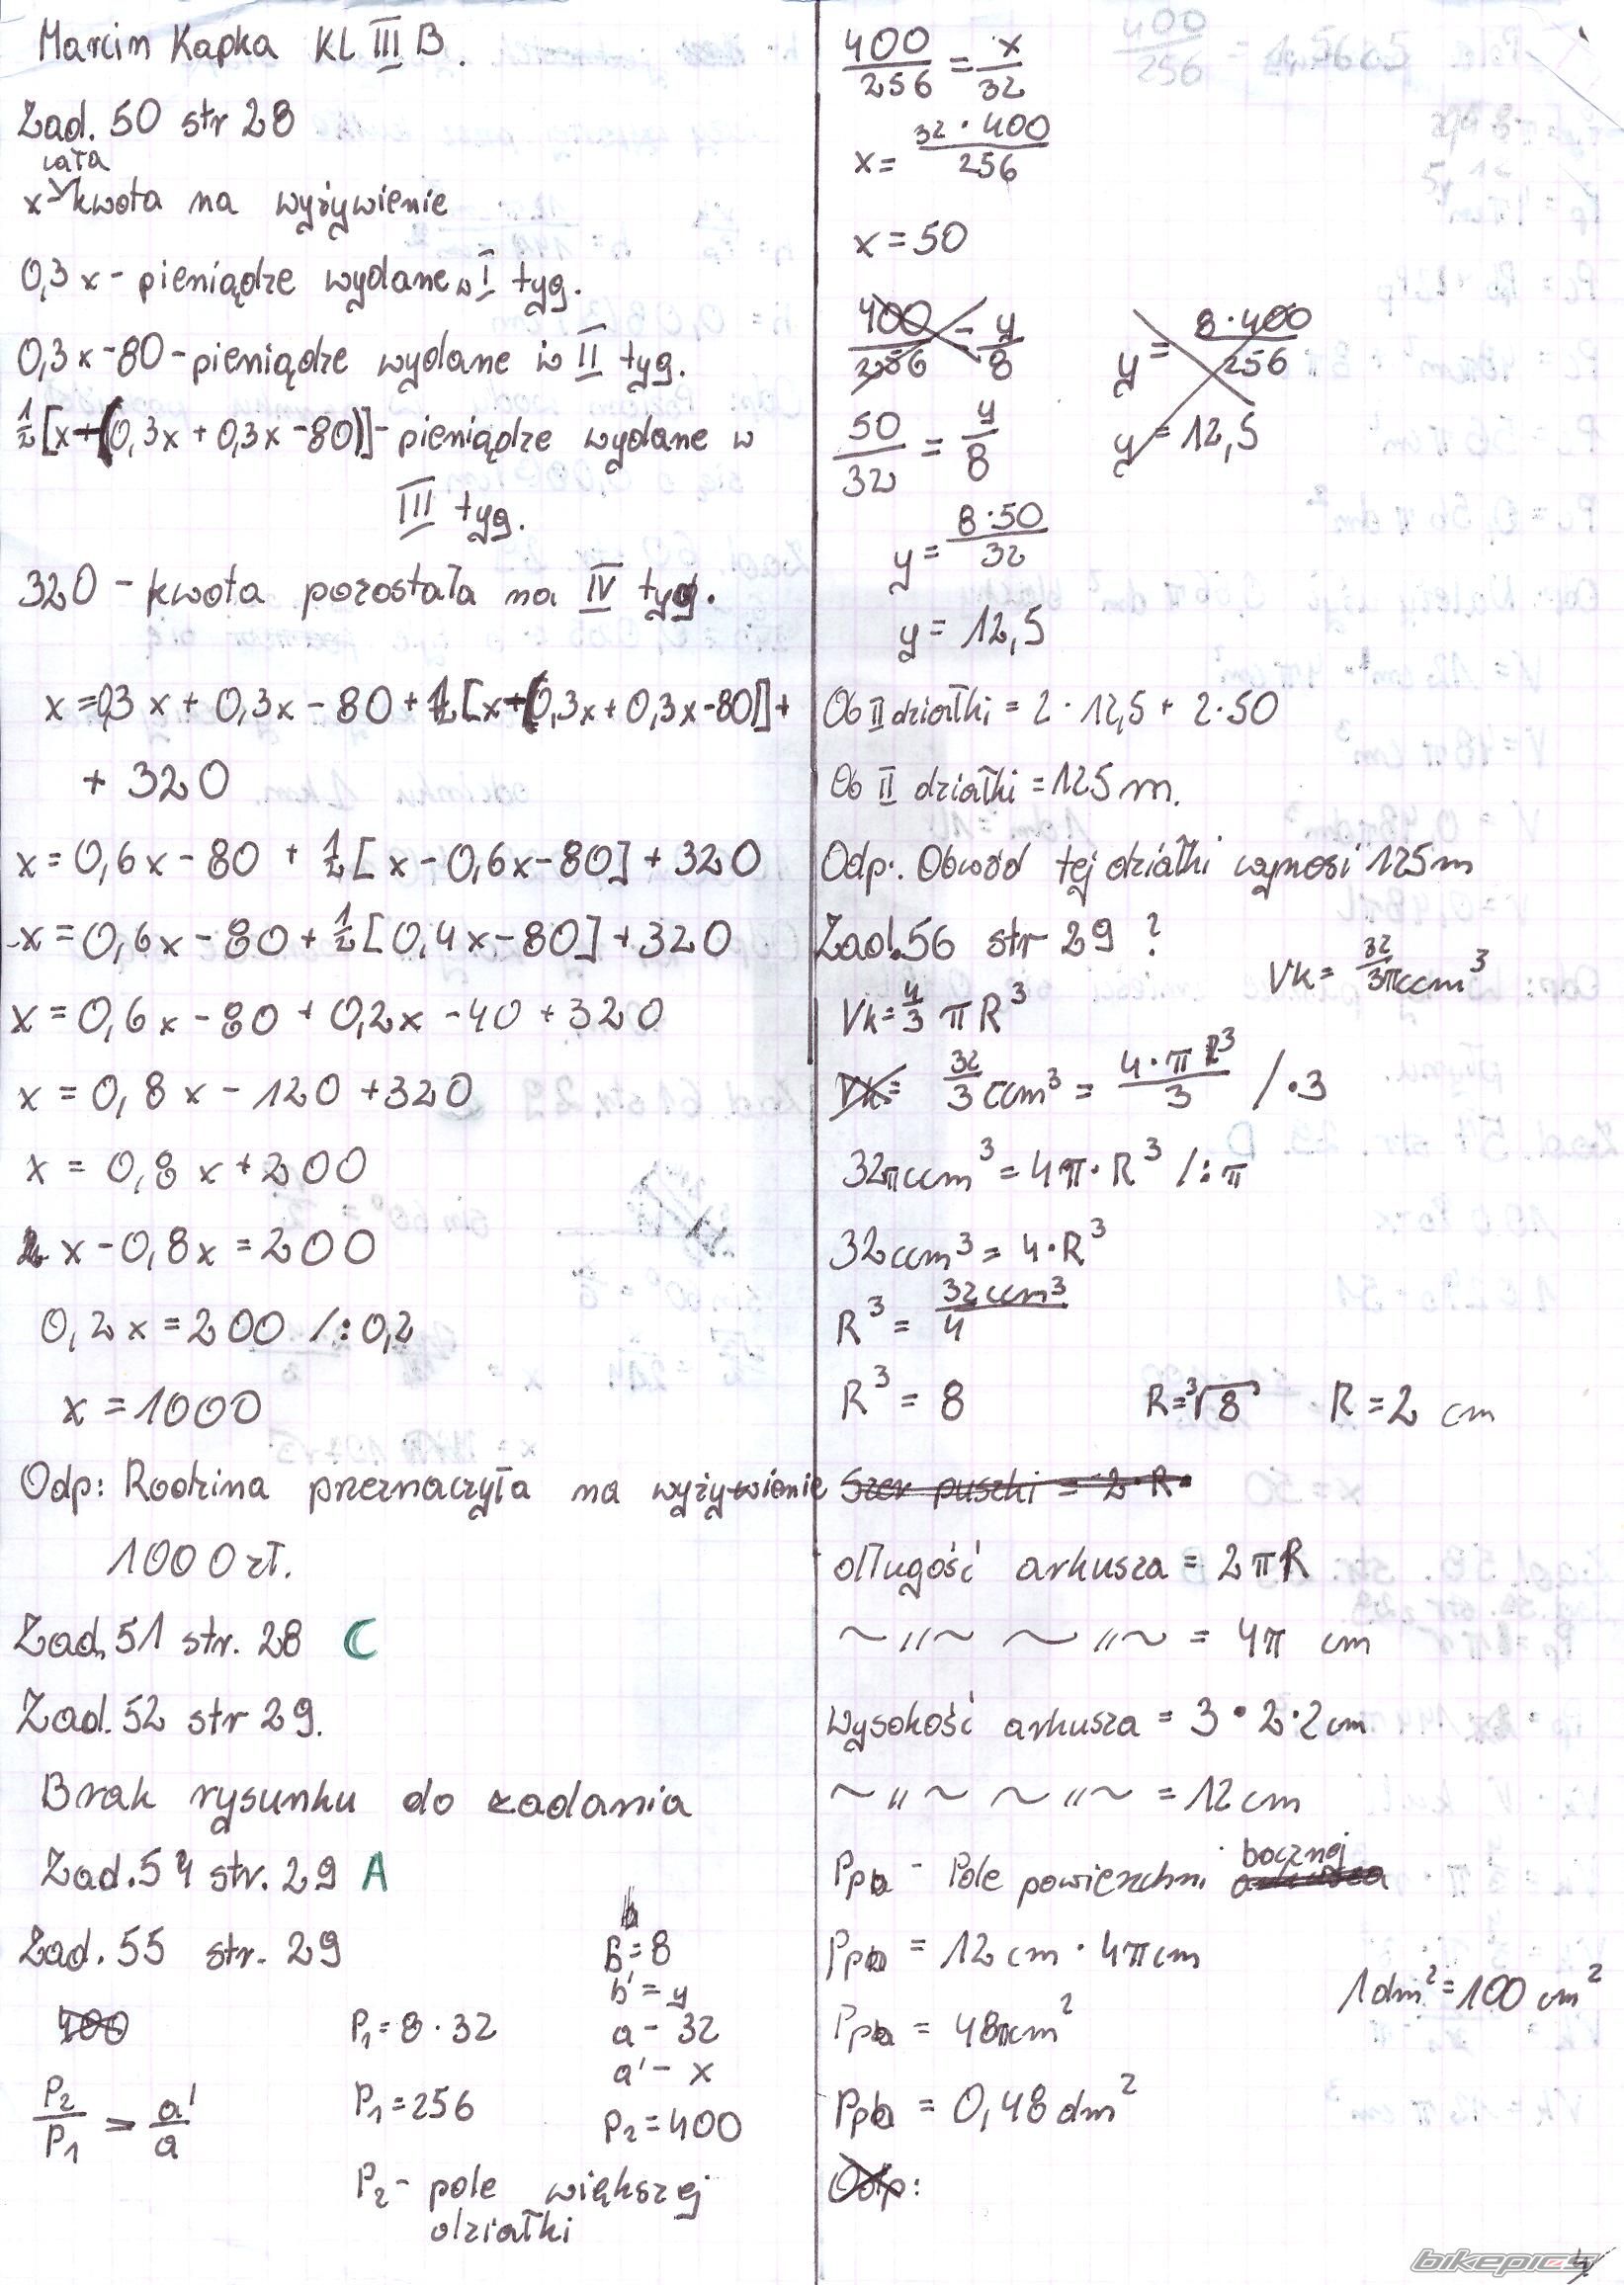 Marcin Kapka KL III B.
Zad. 50 str 28
cała
x - kwota na wyżywienie
0,3x - pieniądze wydane w I tyg.
0,3x - 80 - pieniądze wydane w II tyg.
½[x-(0,3x + 0,3x - 80)] - pieniądze wydane w
III tyg.
320 - kwota pozostała na IV tyg.
x = 0,3x + 0,3x - 80 + ½[x-(0,3x + 0,3x - 80)] +
+ 320
x = 0,6x - 80 + ½[x - 0,6x - 80] + 320
x = 0,6x - 80 + ½[0,4x - 80] + 320
x = 0,6x - 80 + 0,2x - 40 + 320
x = 0,8x - 120 + 320
x = 0,8x + 200
x - 0,8x = 200
0,2x = 200 /: 0,2
x = 1000
Odp: Rodzina przeznaczyła na wyżywienie
1000 zł.
Zad. 51 str. 28 C
Zad. 52 str 29.
Brak rysunku do zadania
Zad. 54 str. 29 A
Zad. 55 str. 29
400
P₂/P₁ = a'/a
P₁ = 8 · 32
P₁ = 256
b = 8
b' = y
a - 32
a' - x
P₂ = 400
P₂ - pole większej
działki
400/256 = x/32
x = 32 · 400/256
x = 50
400/256 = y/8
y = 8 · 400/256
y = 12,5
50/32 = y/8
y = 8 · 50/32
y = 12,5
Ob II działki = 2 · 12,5 + 2 · 50
Ob II działki = 125 m.
Odp: Obwód tej działki wynosi 125m
Zad. 56 str 29 ?
Vk = 32/3 π ccm³
Vk = 4/3 π R³
Vk = 32/3 ccm³ = 4 · π R³/3 / · 3
32π ccm³ = 4π · R³ /: π
32 ccm³ = 4 · R³
R³ = 32 ccm³/4
R³ = 8 R = ³√8 R = 2 cm
Szer puszki = 2 · R ·
długość arkusza = 2πR
~ " ~ ~ " ~ = 4π cm
wysokość arkusza = 3 · 2 · 2cm
~ " ~ ~ " ~ = 12 cm
Ppb - Pole powierzchni bocznej
Ppb = 12 cm · 4π cm
Ppb = 48π cm²
1 dm² = 100 cm²
Ppb = 0,48 dm²
Odp:
bikepics